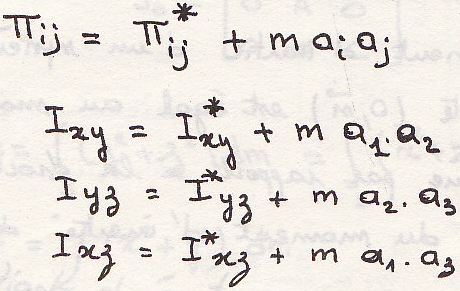 Πij = Π*ij + m ai aj
Ixy = I*xy + m a1.a2
Iyz = I*yz + m a2.a3
Ixz = I*xz + m a1.a3